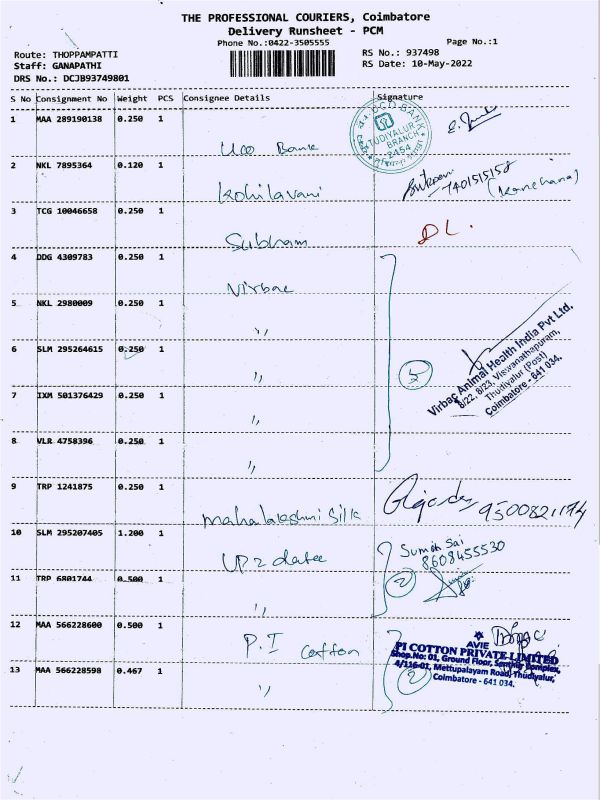 THE PROFESSIONAL COURIERS, Coimbatore
Delivery Runsheet - PCM
Phone No.:0422-3505555
Page No.:1
Route: THOPPAMPATTI
RS No.: 937498
Staff: GANAPATHI
RS Date: 10-May-2022
DRS No.: DCJB93749801
S No Consignment No Weight PCS Consignee Details Signature
1 MAA 289190138 0.250 1
UCO Bank
UCO BANK
TUDIYALUR
BRANCH
2454
2 NKL 7895364 0.120 1
Kohilavani
7401515158
(Kanchana)
3 TCG 10046658 0.250 1
Subham
DL.
4 DDG 4309783 0.250 1
Virbac
5 NKL 2980009 0.250 1
"
6 SLM 295264615 0.250 1
"
5
Virbac Animal Health India Pvt Ltd.
8/22, 8/23, Viswanathapuram,
Thudiyalur (Post)
Coimbatore - 641 034.
7 IXM 501376429 0.250 1
"
8 VLR 4758396 0.250 1
"
9 TRP 1241875 0.250 1
Mahalakshmi Silk
9500821194
10 SLM 295207405 1.200 1
UP2 datee
Sumith Sai
8608455530
11 TRP 6801744 0.500 1
"
2
12 MAA 566228600 0.500 1
P.I Cotton
AVIE
PI COTTON PRIVATE LIMITED
Shop.No: 01, Ground Floor, Complex,
4/116-01, Mettupalayam Road, Thudiyalur,
Coimbatore - 641 034.
13 MAA 566228598 0.467 1
"
2